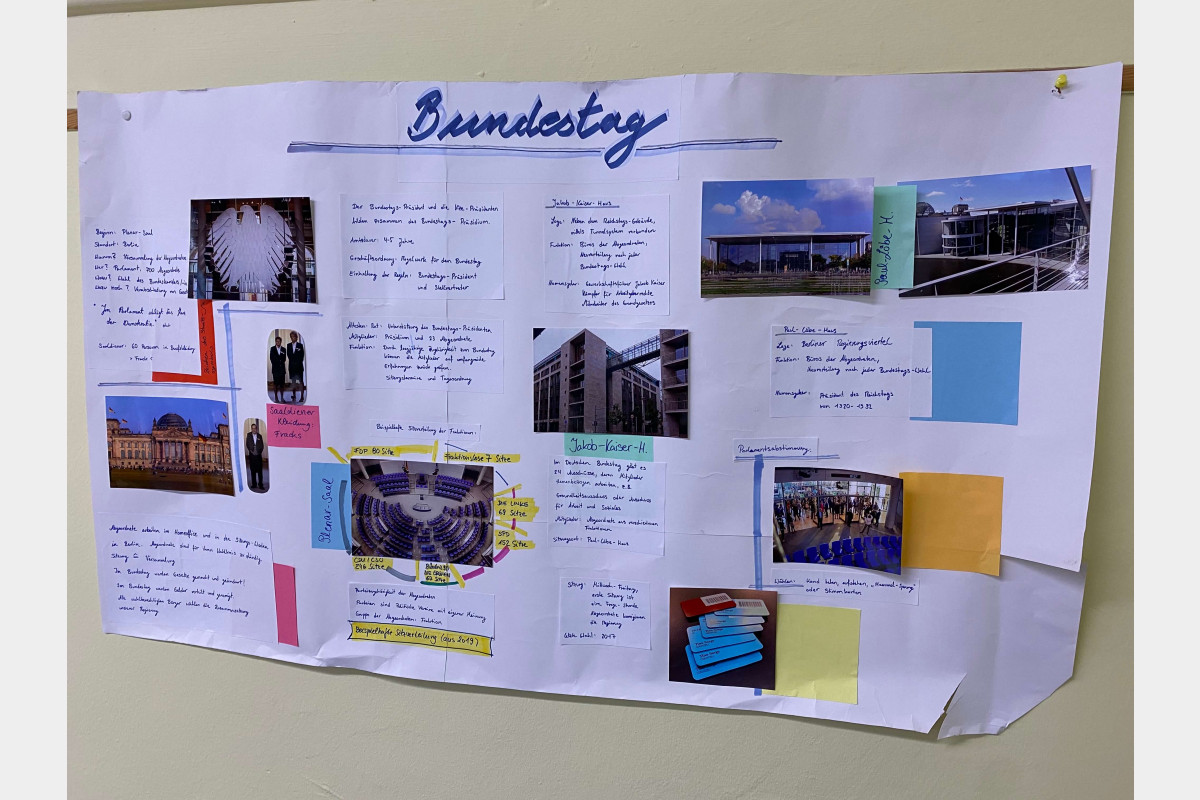 Bundestag
Beginn: Plenar-Saal
Standort: Berlin
Warum? Versammlung der Abgeordneten
Wer? Parlament, 700 Abgeordnete
"Im Parlament schlägt das Herz
der Demokratie."
Saaldiener: 60 Personen in
Der Bundestags-Präsident und die Vize-Präsidenten
bilden zusammen das Bundestags-Präsidium.
Amtsdauer: 4-5 Jahre
Geschäftsordnung: Regelwerk für den Bundestag
Einhaltung der Regeln: Bundestags-Präsident
und Stellvertreter
Ältesten-Rat: Unterstützung des Bundestags-Präsidenten
Mitglieder: Präsidium und 23 Abgeordnete
Funktion: Durch langjährige Zugehörigkeit zum Bundestag
können die Mitglieder auf umfangreiche
Erfahrungen zurück greifen.
Sitzungstermine und Tagesordnung
Jakob-Kaiser-Haus
Lage: Neben dem Reichstags-Gebäude,
mittels Tunnelsystem verbunden
Funktion: Büros der Abgeordneten,
Neuverteilung nach jeder
Bundestags-Wahl
Namensgeber: Gewerkschaftsführer Jakob Kaiser
Kämpfer für Arbeitgeberrechte
Mitarbeiter des Grundgesetzes
Paul-Löbe-H.
Paul-Löbe-Haus
Lage: Berliner Regierungsviertel
Funktion: Büros der Abgeordneten,
Neuverteilung nach jeder Bundestags-Wahl
Namensgeber: Präsident des Reichstags
von 1920-1932
Saaldiener
Kleidung:
Fracks
Jakob-Kaiser-H.
Beispielhafte Sitzverteilung der Fraktionen:
FDP 80 Sitze
Fraktionslose 7 Sitze
Die LINKE
69 Sitze
SPD
152 Sitze
CDU/CSU
246 Sitze
Bündnis 90
DIE GRÜNEN
67 Sitze
Plenar-Saal
Im Deutschen Bundestag gibt es
24 Ausschüsse, deren Mitglieder
themenbezogen arbeiten, z.B.
Gesundheitsausschuss oder Ausschuss
für Arbeit und Soziales
Mitglieder: Abgeordnete aus verschiedenen
Fraktionen
Sitzungsort: Paul-Löbe-Haus
Parlamentsabstimmung
Wählen: Hand heben, aufstehen, "Hammel-Sprung"
oder Stimmkarten
Abgeordnete arbeiten im Homeoffice und in der Sitzungs-Wochen
in Berlin. Abgeordnete sind für ihren Wahlkreis zuständig.
Sitzung = Versammlung
Im Bundestag werden Gesetze gemacht und geändert!
Im Bundestag werden Gelder verteilt und geregelt
Alle wahlberechtigten Bürger wählen die Zusammensetzung
unserer Regierung
Parteizugehörigkeit der Abgeordneten
Parteien sind Politische Vereine mit eigener Meinung
Gruppe der Abgeordneten: Fraktion
Beispielhafte Sitzverteilung (aus 2019)
Sitzung: Mittwoch-Freitag,
erste Sitzung ist
eine Frage-Stunde
Abgeordnete
die Regierung
Letzte Wahl: 2017